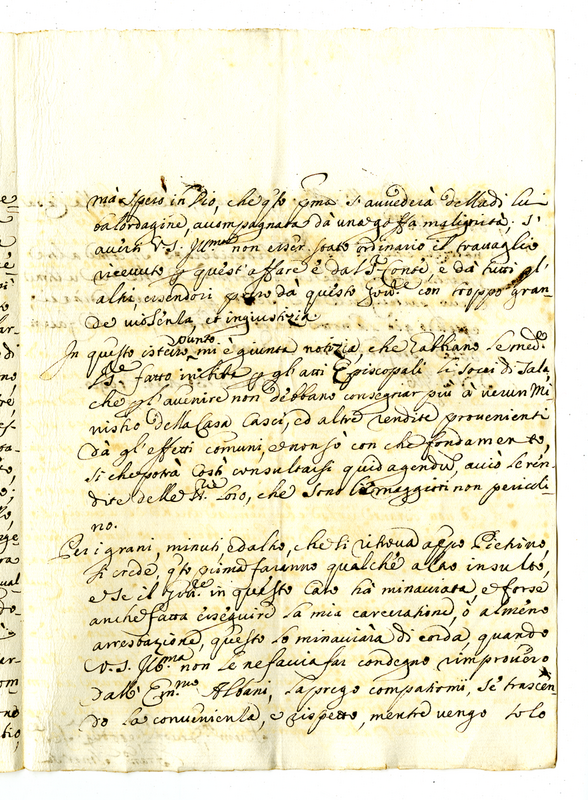 mà spero in Dio, che q.to p.mo s'avvederà della di lui
balordagine, accompagnata dà una goffa malignità; s'
averti V. S. Ill.ma non esser stato ordinario il travaglio
ricevuto p quest'affare è dal S.r Conte, è dà tutti gl'
altri, essendosi preso dà questo Gov.re con troppo gran-
de violenza, et ingiustizia
In questo istesso punto mi è giunta notizia, che habbiano le med.
fatto inibire p gli atti Episcopali li Socci di Sala
che p l'avenire non debbano consegnar più à verun Mi
nistro della Casa Casci, ed altre rendite provenienti
dà gl'effetti comuni, e non sò con che fondamento,
si che potrà costì consultarsi quid agendu, acciò le ren
dite delle Loro, che sono le maggiori non pericoli-
no.
Per i grani, minuti, ed altro, che si ritrova app.o Pietrino,
si crede q.to p.mo faranno qualche altro insulto,
e se il Gov.re in questo caso hà minacciata, e forse
anche fatta eseguire la mia carceratione, ò almeno
arrestazione, questo lo minacciarà di corda, quando
V. S. Ill.ma non le ne faccia far condegno rimprovero
dall' Em.mo Albani, la prego compatirmi, se trascen
do la convenienza, e rispetto, mentre vengo solo